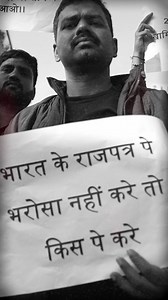 आओ।।
भारत के राजपत्र पे
भरोसा नहीं करे तो
किस पे करे